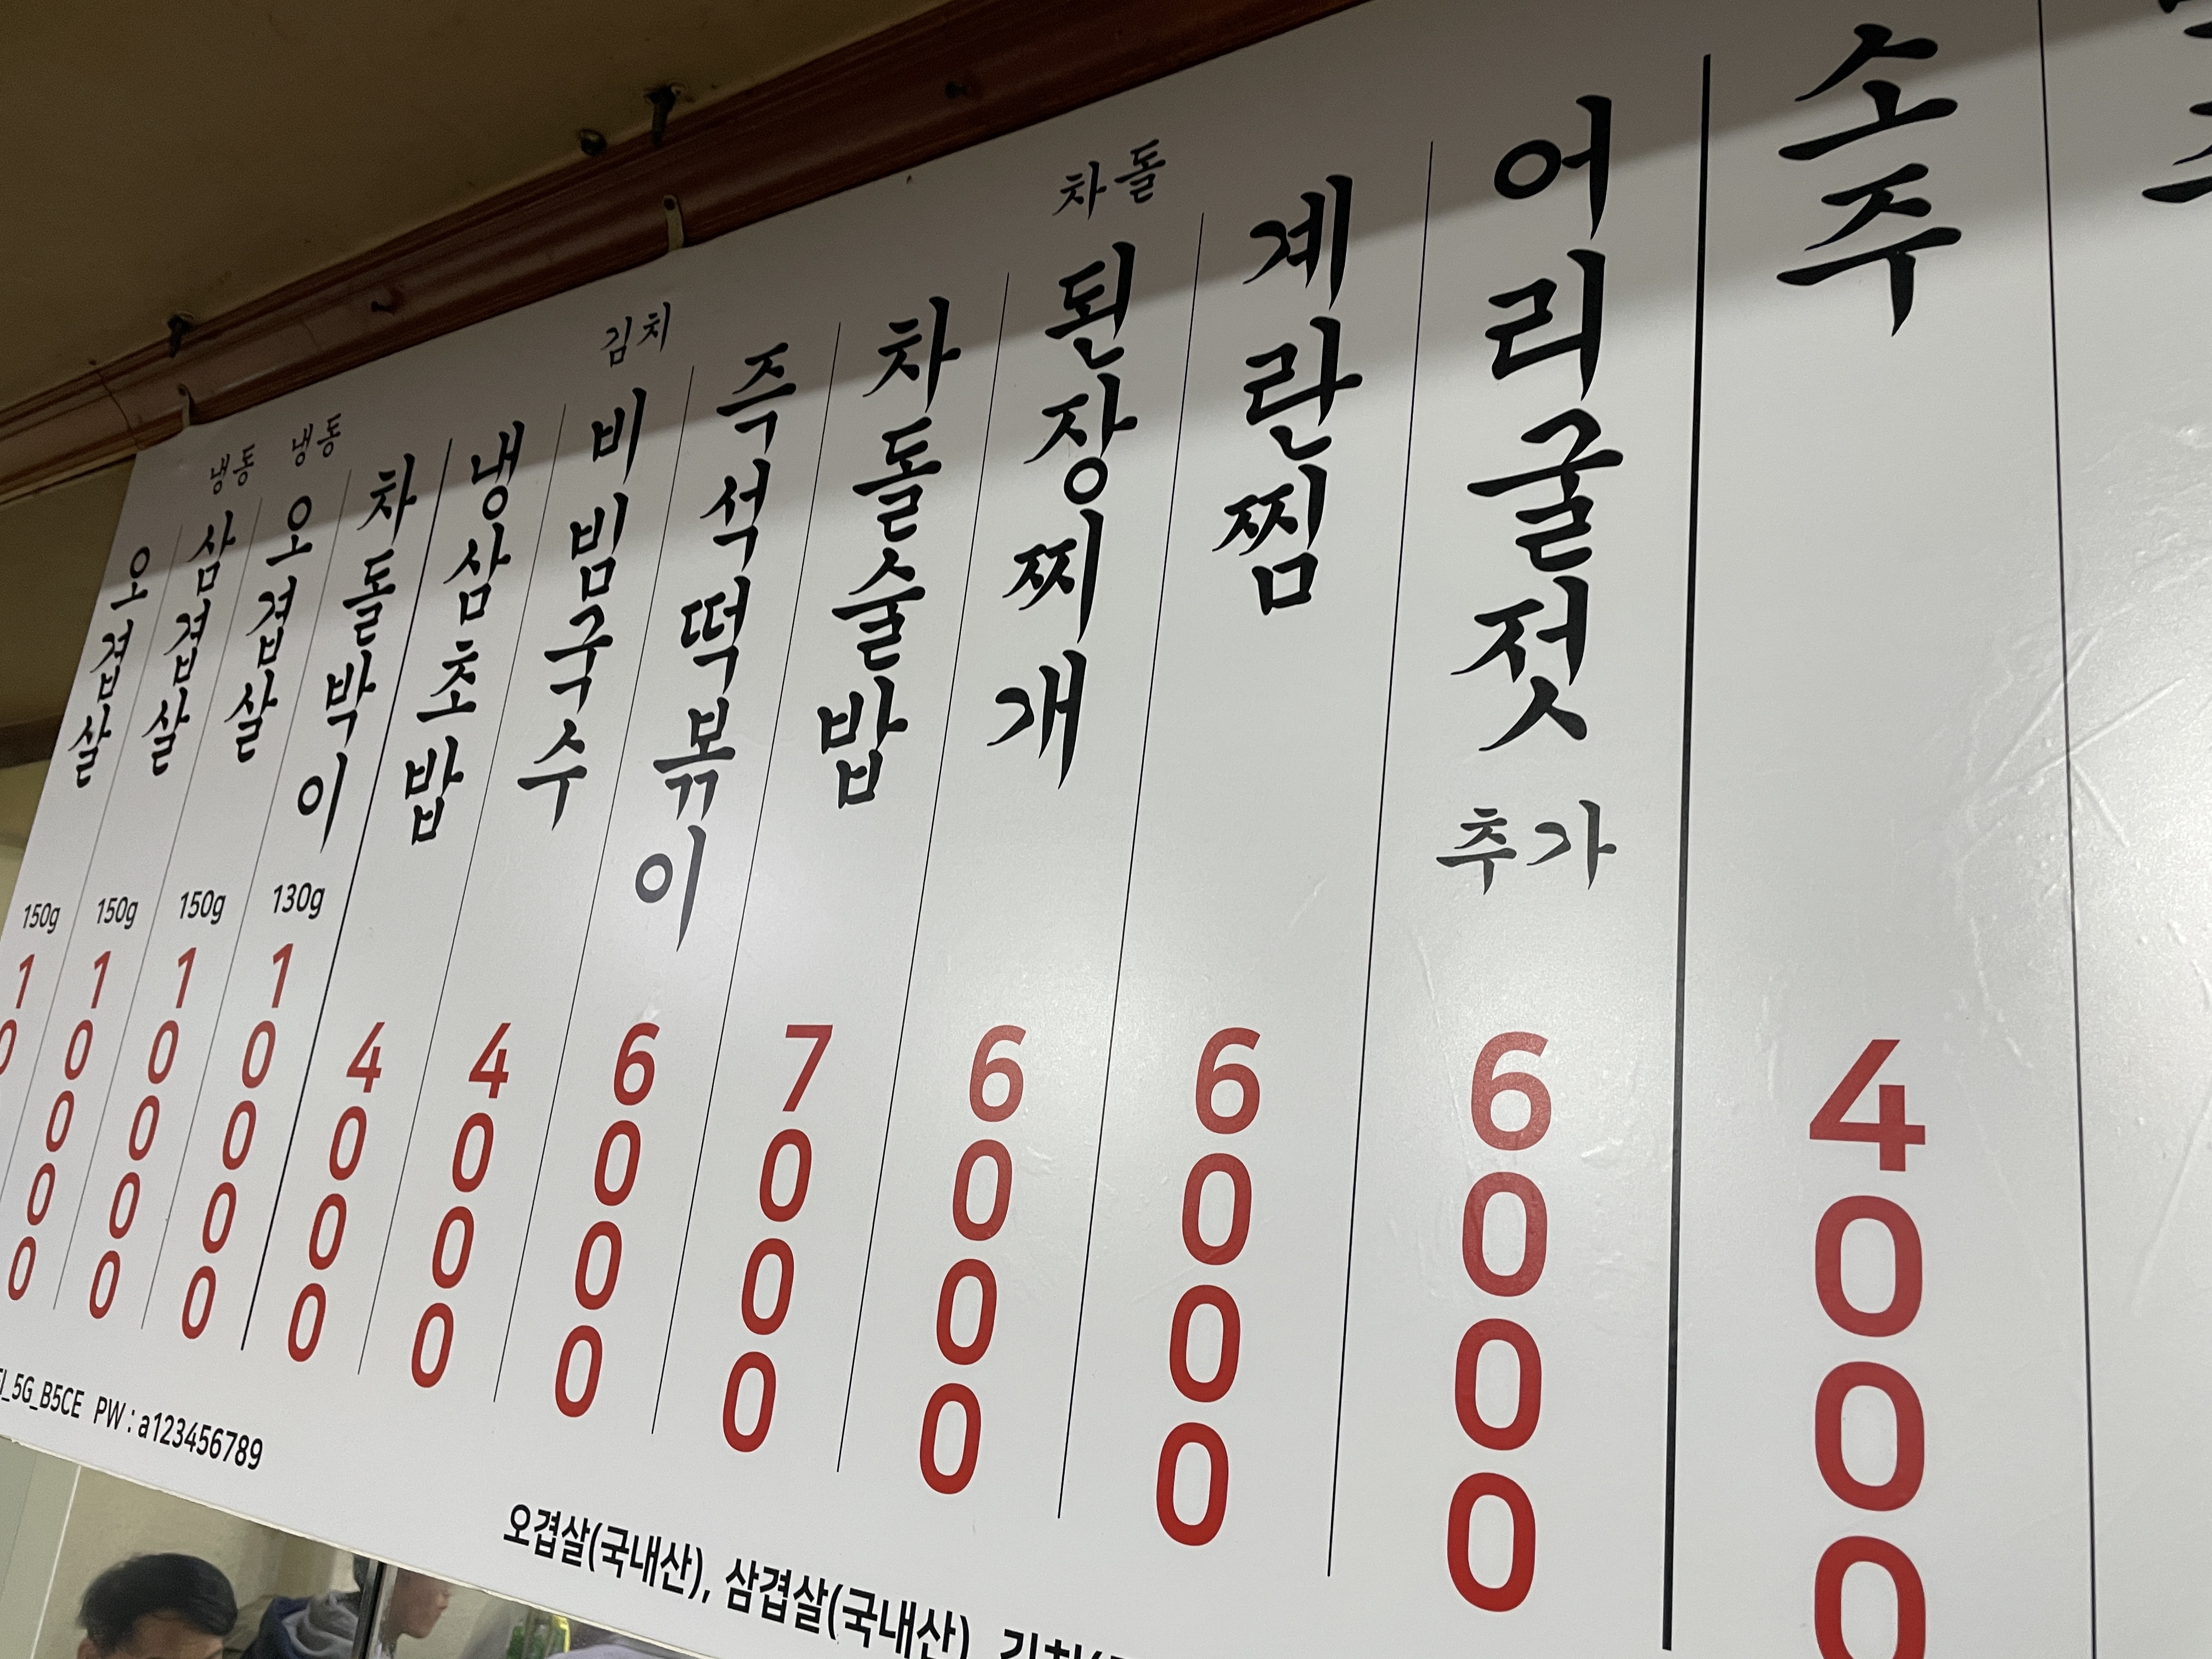 오겹살
150g
10
냉동
삼겹살
150g
10000
냉동
오겹살
150g
10000
차돌박이
130g
10000
냉삼초밥
4000
김치
비빔국수
4000
즉석떡볶이
6000
차돌술밥
7000
차돌
된장찌개
6000
계란찜
6000
어리굴젓
추가
6000
소주
4000
_5G_B5CE PW : a123456789
오겹살(국내산), 삼겹살(국내산),